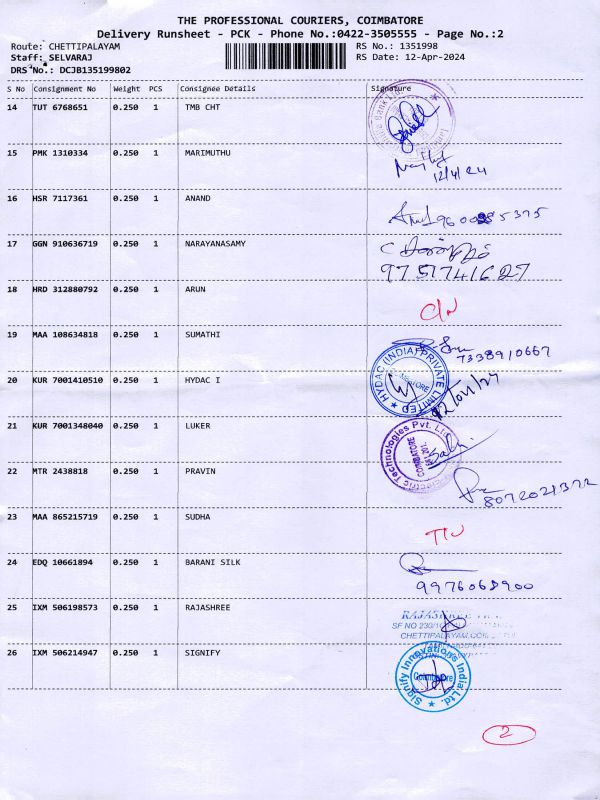 THE PROFESSIONAL COURIERS, COIMBATORE
Delivery Runsheet - PCK - Phone No.:0422-3505555 - Page No.:2
Route: CHETTIPALAYAM RS No.: 1351998
Staff: SELVARAJ RS Date: 12-Apr-2024
DRS No.: DCJB135199802
S No Consignment No Weight PCS Consignee Details Signature
14 TUT 6768651 0.250 1 TMB CHT
15 PMK 1310334 0.250 1 MARIMUTHU
12/4/24
16 HSR 7117361 0.250 1 ANAND
17 GGN 910636719 0.250 1 NARAYANASAMY
9751741627
18 HRD 312880792 0.250 1 ARUN
19 MAA 108634818 0.250 1 SUMATHI
7338910667
20 KUR 7001410510 0.250 1 HYDAC I HYDAC (INDIA) PRIVATE LIMITED
21 KUR 7001348040 0.250 1 LUKER Technologies Pvt. Ltd. COIMBATORE
22 MTR 2438818 0.250 1 PRAVIN
8072021372
23 MAA 865215719 0.250 1 SUDHA
24 EDQ 10661894 0.250 1 BARANI SILK
9976068900
25 IXM 506198573 0.250 1 RAJASHREE RAJASHREE
SF NO 230/1
CHETTIPALAYAM
26 IXM 506214947 0.250 1 SIGNIFY Signify Innovations India Ltd. Coimbatore
2